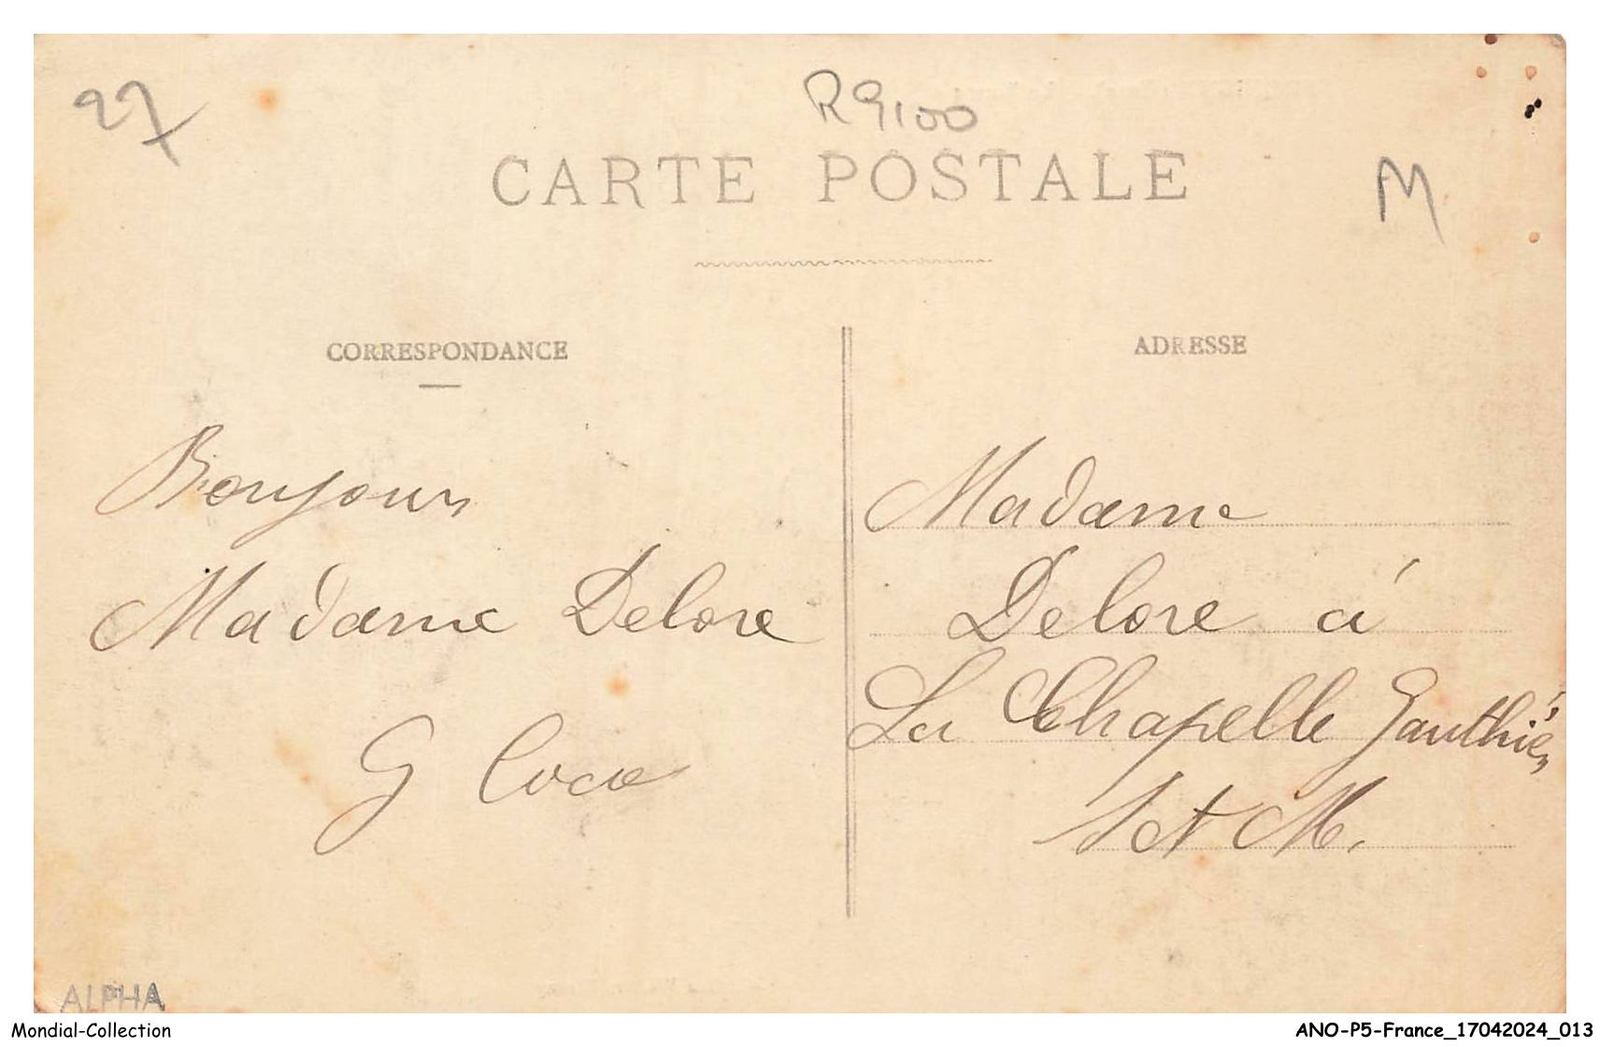 27
R9100
CARTE POSTALE
M
CORRESPONDANCE
Bonjour
Madame Delore
G
ADRESSE
Madame
Delore à
La Chapelle Gauthier
S et M.
ALPHA
Mondial-Collection
ANO-P5-France_17042024_013